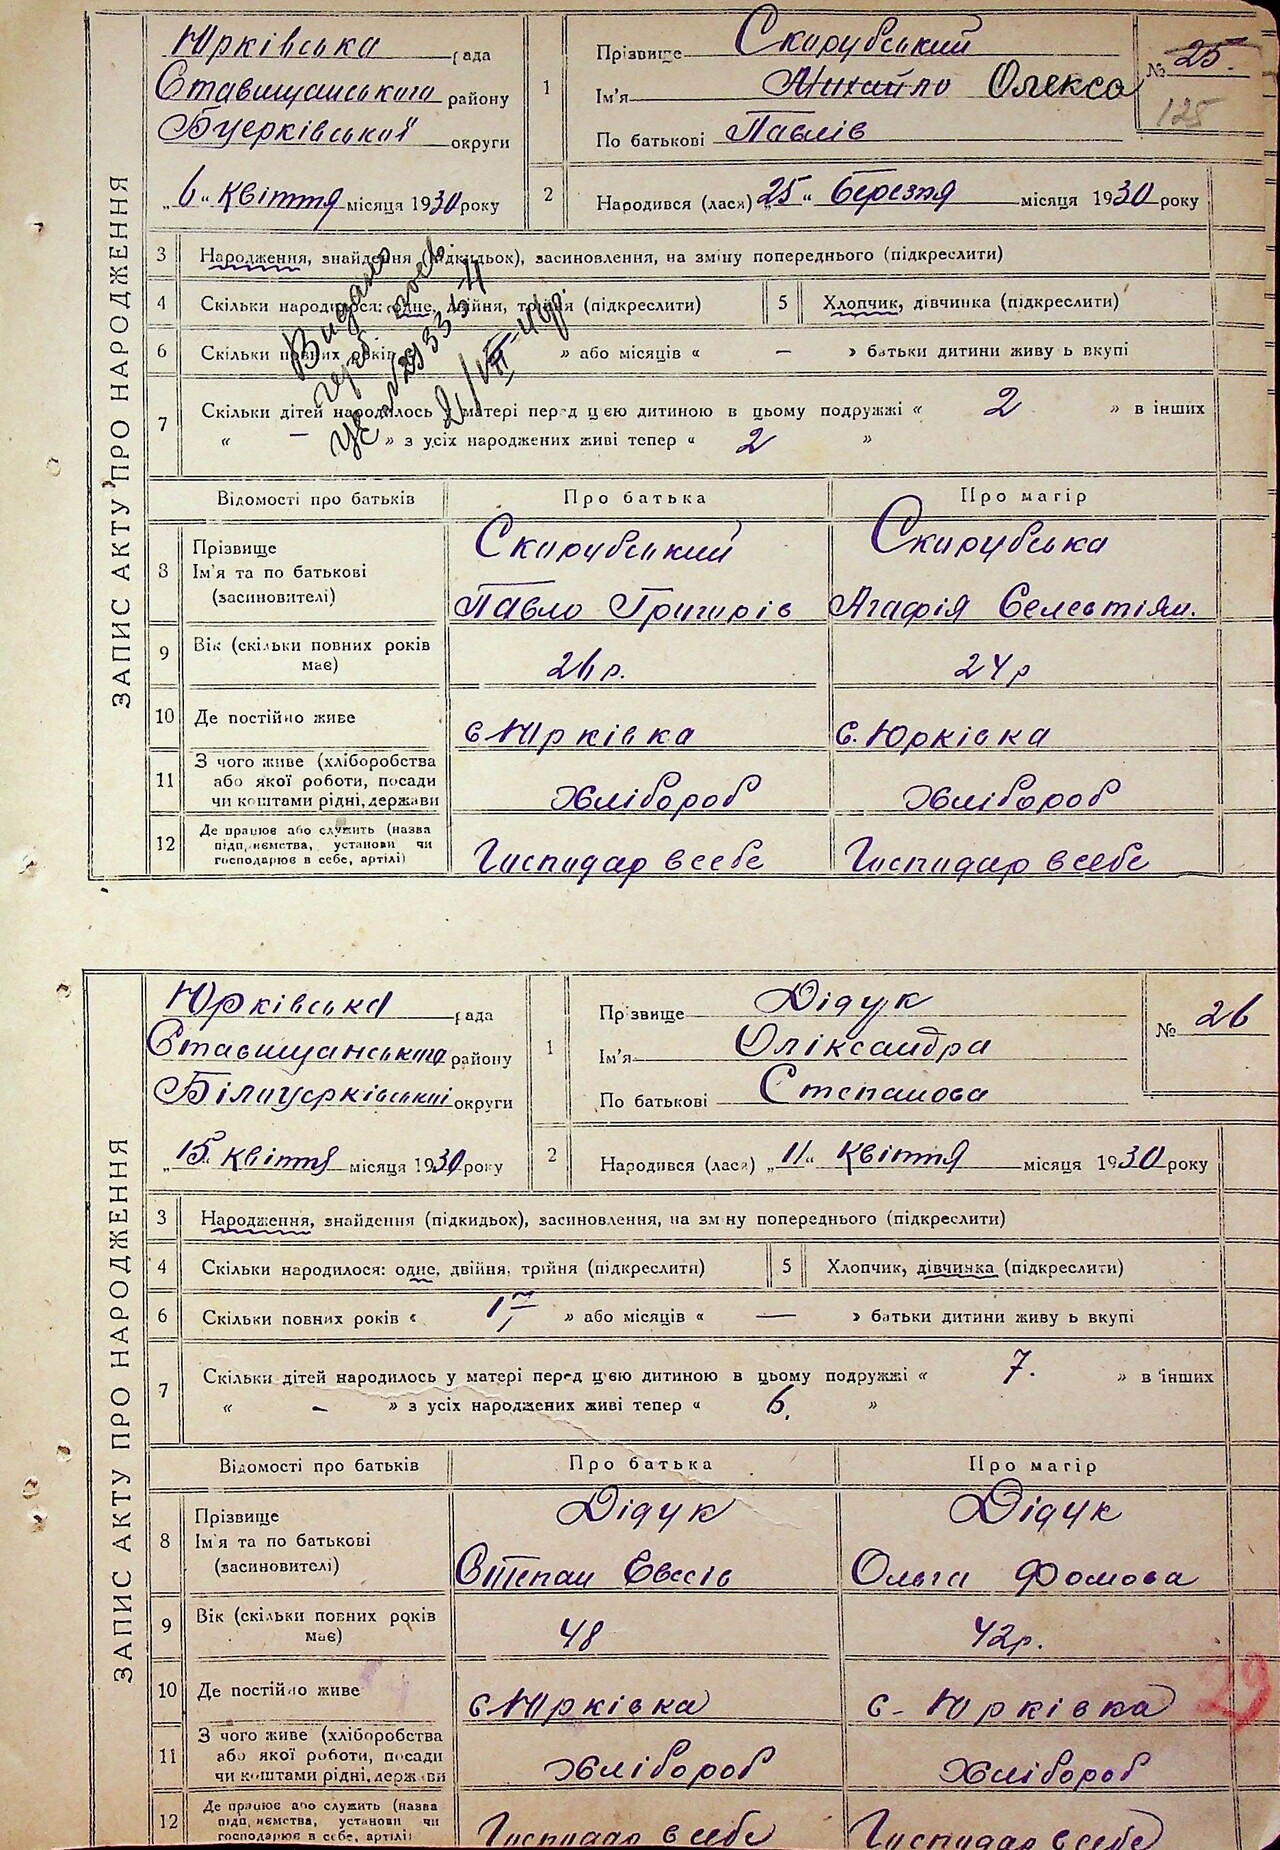 ЗАПИС АКТУ ПРО НАРОДЖЕННЯ
Юрківська рада
Ставищанського району
Бцерківський округи
„6“ квітня місяця 1930 року
1 Прізвище Скарубський
Ім'я Михайло Олекса
По батькові Павлів
№ 25.
125
2 Народився (лася) „25“ березня місяця 1930 року
3 Народження, знайдення (підкидьок), засиновлення, на зміну попереднього (підкреслити)
4 Скільки народилося: одне, двійня, трійня (підкреслити) 5 Хлопчик, дівчинка (підкреслити)
6 Скільки повних років » або місяців « — » батьки дитини живуть вкупі
7 Скільки дітей народилось у матері перед цією дитиною в цьому подружжі « 2 » в інших
« — » з усіх народжених живі тепер « 2 »
Видано
Відомості про батьків Про батька Про матір
8 Прізвище Скарубський Скарубська
Ім'я та по батькові
(засиновителі) Павло Григорів Агафія
9 Вік (скільки повних років має) 26 р. 24 р
10 Де постійно живе с Юрківка с. Юрківка
11 З чого живе (хліборобства
або якої роботи, посади Хлібороб Хлібороб
чи коштами рідні, держави
12 Де працює або служить (назва
підприємства, установи чи
господарює в себе, артілі) Господар в себе Господар в себе
ЗАПИС АКТУ ПРО НАРОДЖЕННЯ
Юрківська рада
Ставищанського району
Білоцерківський округи
„15“ квітня місяця 1930 року
1 Прізвище Дідук
Ім'я Оліксандра
По батькові Степанова
№ 26
2 Народився (лася) „11“ квітня місяця 1930 року
3 Народження, знайдення (підкидьок), засиновлення, на зміну попереднього (підкреслити)
4 Скільки народилося: одне, двійня, трійня (підкреслити) 5 Хлопчик, дівчинка (підкреслити)
6 Скільки повних років « » або місяців « — » батьки дитини живуть вкупі
7 Скільки дітей народилось у матері перед цією дитиною в цьому подружжі « 7. » в інших
« — » з усіх народжених живі тепер « 6. »
Відомості про батьків Про батька Про матір
8 Прізвище Дідук Дідук
Ім'я та по батькові
(засиновителі) Степан Евсів Ольга Фомова
9 Вік (скільки повних років має) 48 42р.
10 Де постійно живе с Юрківка с - Юрківка
29
11 З чого живе (хліборобства
або якої роботи, посади Хлібороб Хлібороб
чи коштами рідні, держави
12 Де працює або служить (назва
підприємства, установи чи
господарює в себе, артілі) Господар в себе Господар в себе